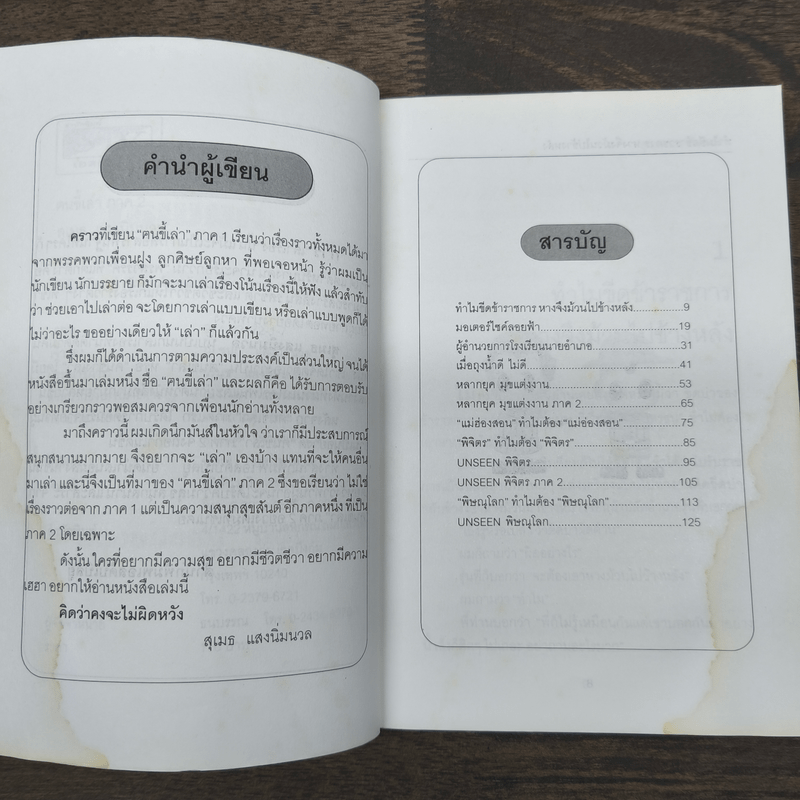 คำนำผู้เขียน
คราวที่เขียน "ฅนขี้เล่า" ภาค 1 เรียนว่าเรื่องราวทั้งหมดได้มา
จากพรรคพวกเพื่อนฝูง ลูกศิษย์ลูกหา ที่พอเจอหน้า รู้ว่าผมเป็น
นักเขียน นักบรรยาย ก็มักจะมาเล่าเรื่องโน้นเรื่องนี้ให้ฟัง แล้วสำทับ
ว่า ช่วยเอาไปเล่าต่อ จะโดยการเล่าแบบเขียน หรือเล่าแบบพูดก็ได้
ไม่ว่าอะไร ขออย่างเดียวให้ "เล่า" ก็แล้วกัน
ซึ่งผมก็ได้ดำเนินการตามความประสงค์เป็นส่วนใหญ่ จนได้
หนังสือขึ้นมาเล่มหนึ่ง ชื่อ "ฅนขี้เล่า" และผลก็คือ ได้รับการตอบรับ
อย่างเกรียวกราวพอสมควรจากเพื่อนนักอ่านทั้งหลาย
มาถึงคราวนี้ ผมเกิดนึกมันส์ในหัวใจ ว่าเราก็มีประสบการณ์
สนุกสนานมากมาย จึงอยากจะ "เล่า" เองบ้าง แทนที่จะให้คนอื่น
มาเล่า และนี่จึงเป็นที่มาของ "ฅนขี้เล่า" ภาค 2 ซึ่งขอเรียนว่า ไม่ใช่
เรื่องราวต่อจาก ภาค 1 แต่เป็นความสนุกสุขสันต์ อีกภาคหนึ่ง ที่เป็น
ภาค 2 โดยเฉพาะ
ดังนั้น ใครที่อยากมีความสุข อยากมีชีวิตชีวา อยากมีความ
เฮฮา อยากให้อ่านหนังสือเล่มนี้
คิดว่าคงจะไม่ผิดหวัง
สุเมธ แสงนิ่มนวล
สารบัญ
ทำไมขีดข้าราชการ หางจึงม้วนไปข้างหลัง..............9
มอเตอร์ไซค์ลอยฟ้า.......................................19
ผู้อำนวยการโรงเรียนนายอำเภอ..........................31
เมื่อถุงน้ำดี ไม่ดี...........................................41
หลากยุค มุขแต่งงาน......................................53
หลากยุค มุขแต่งงาน ภาค 2.............................65
"แม่ฮ่องสอน" ทำไมต้อง "แม่ฮ่องสอน"................75
"พิจิตร" ทำไมต้อง "พิจิตร"..............................85
UNSEEN พิจิตร...........................................95
UNSEEN พิจิตร ภาค 2..................................105
"พิษณุโลก" ทำไมต้อง "พิษณุโลก"....................113
UNSEEN พิษณุโลก......................................125